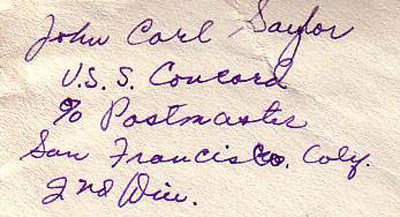 John Carl Saylor
U.S.S. Concord
% Postmaster
San Francisco. Caly.
2nd Div.